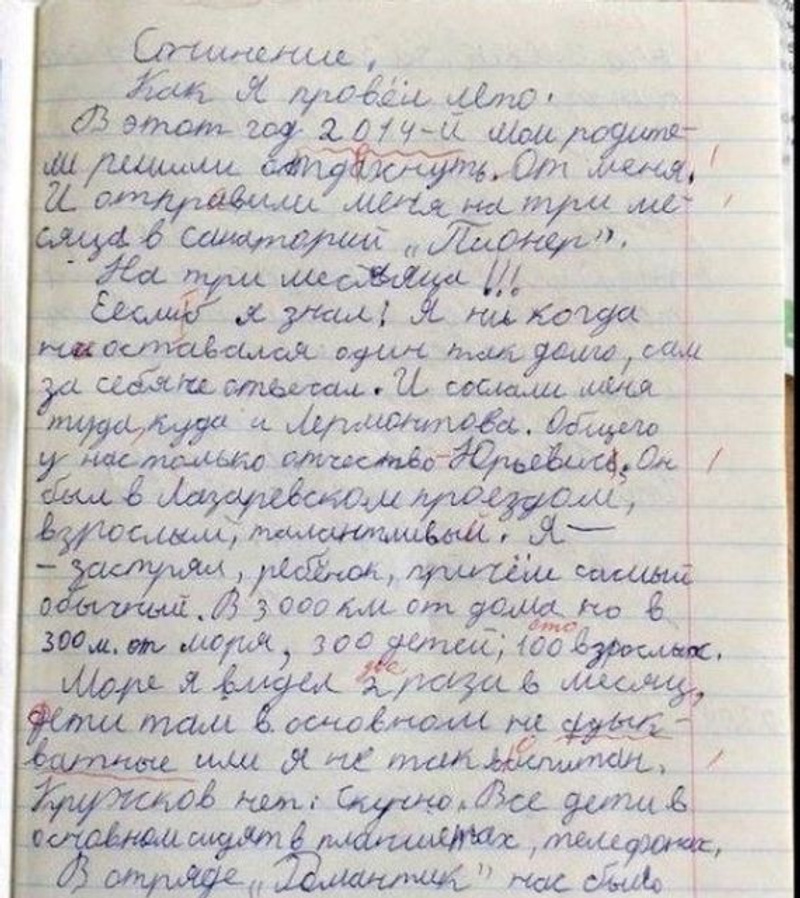 Сочинение.
Как Я провёл лето.
В этот год 2014-й мои родите-
ли решили отдохнуть. От меня.
И отправили меня на три ме-
сяца в санаторий „Пионер".
На три месяца!!!
Ееслиб я знал! Я ни когда
не оставался один так долго, сам
за себя не отвечал. И сослали меня
туда, куда и Лермонтова. Общего
у нас только отчество-Юрьевич. Он
был в Лазаревском проездом,
взрослым, талантливый. Я —
- застрял, ребёнок, причём самый
обычный. В 3000 км от дома но в
300 м. от моря, 300 детей, 100 взрослых.
сто
Море я видел 2 раза в месяц,
два
дети там в основном не адык-
ватные или я не так воспитан.
Кружков нет. Скучно. Все дети в
основном сидят в планшетах, телефонах.
В отряде „Романтик" нас было